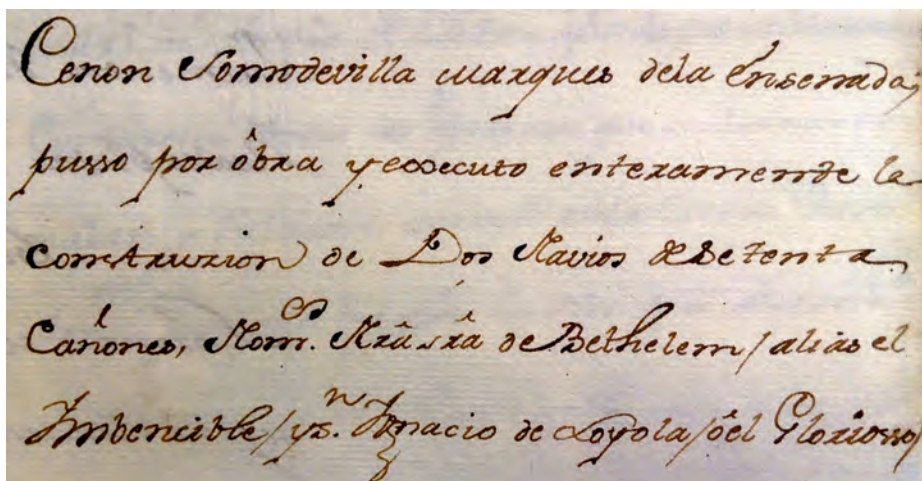 Cenon Somodevilla marques dela Ensenada,
pusso por ôbra y executo enteramente la
construzion de Dos Navios de Setenta
Cañones, Nom.dos Nrâ Srâ de Bethelem / alias el
Imbencible / y Sn. Ignacio de Loyola / ô el Gloriosso /